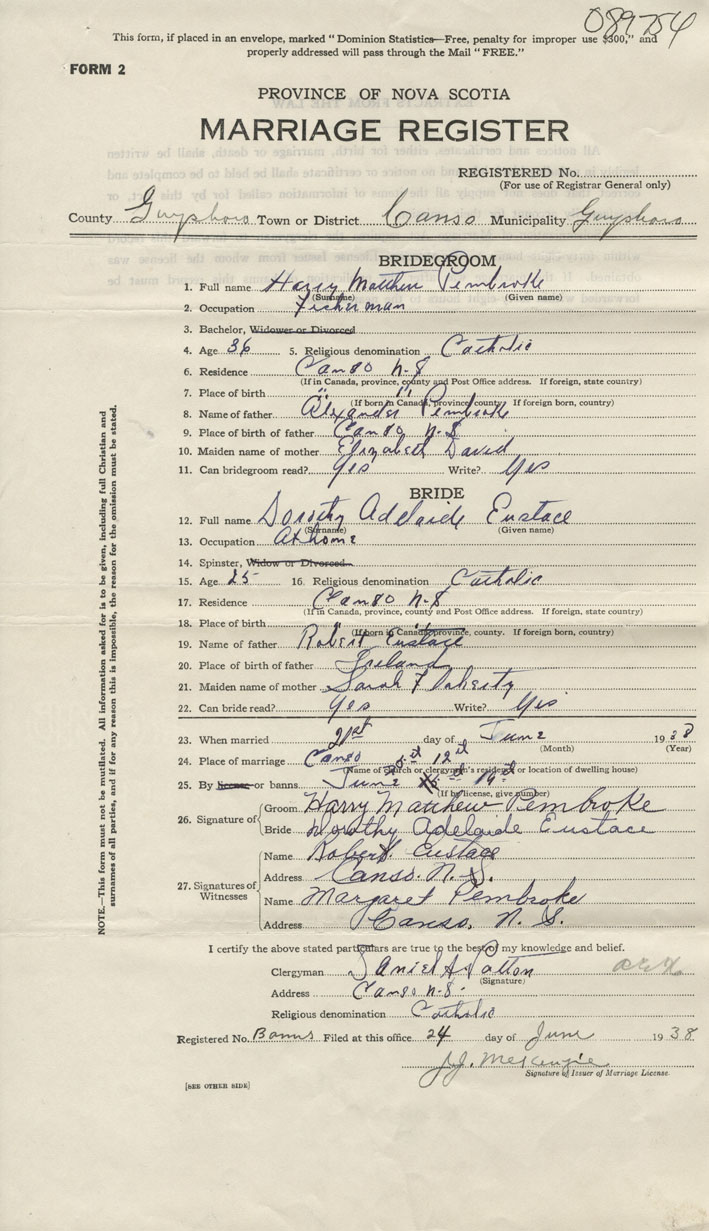 089754
This form, if placed in an envelope, marked "Dominion Statistics—Free, penalty for improper use $300," and
properly addressed will pass through the Mail "FREE."
FORM 2
PROVINCE OF NOVA SCOTIA
MARRIAGE REGISTER
REGISTERED No.
(For use of Registrar General only)
County Guysboro Town or District Canso Municipality Guysboro
BRIDEGROOM
1. Full name Harry Matthew Pembroke
(Surname) (Given name)
2. Occupation Fisherman
3. Bachelor, Widower or Divorced
4. Age 36 5. Religious denomination Catholic
6. Residence Canso N-S
(If in Canada, province, county and Post Office address. If foreign, state country)
7. Place of birth " "
(If born in Canada, province, county. If foreign born, country)
8. Name of father Alexander Pembroke
9. Place of birth of father Canso N-S
10. Maiden name of mother Elizabeth David
11. Can bridegroom read? Yes Write? Yes
BRIDE
12. Full name Dorothy Adelaide Eustace
(Surname) (Given name)
13. Occupation At home
14. Spinster, Widow or Divorced
15. Age 25 16. Religious denomination Catholic
17. Residence Canso N-S
(If in Canada, province, county and Post Office address. If foreign, state country)
18. Place of birth " "
(If born in Canada, province, county. If foreign born, country)
19. Name of father Robert Eustace
20. Place of birth of father Ireland
21. Maiden name of mother Sarah F Doherty
22. Can bride read? Yes Write? Yes
23. When married 21st day of June 1938
(Month) (Year)
24. Place of marriage Canso
(Name of church or clergymen's residence or location of dwelling house)
25. By license or banns June 5th 12th 19th
(If by license, give number)
26. Signature of Groom Harry Matthew Pembroke
Bride Dorothy Adelaide Eustace
27. Signatures of Witnesses
Name Robert Eustace
Address Canso. N. S.
Name Margaret Pembroke
Address Canso, N. S.
I certify the above stated particulars are true to the best of my knowledge and belief.
Clergyman Daniel A Patton
(Signature)
Address Canso N-S.
Religious denomination Catholic
Registered No. Banns Filed at this office 24 day of June 1938
J.J. McKenzie
Signature of Issuer of Marriage License.
[SEE OTHER SIDE]
NOTE.—This form must not be mutilated. All information asked for is to be given, including full Christian and
surnames of all parties, and if for any reason this is impossible, the reason for the omission must be stated.